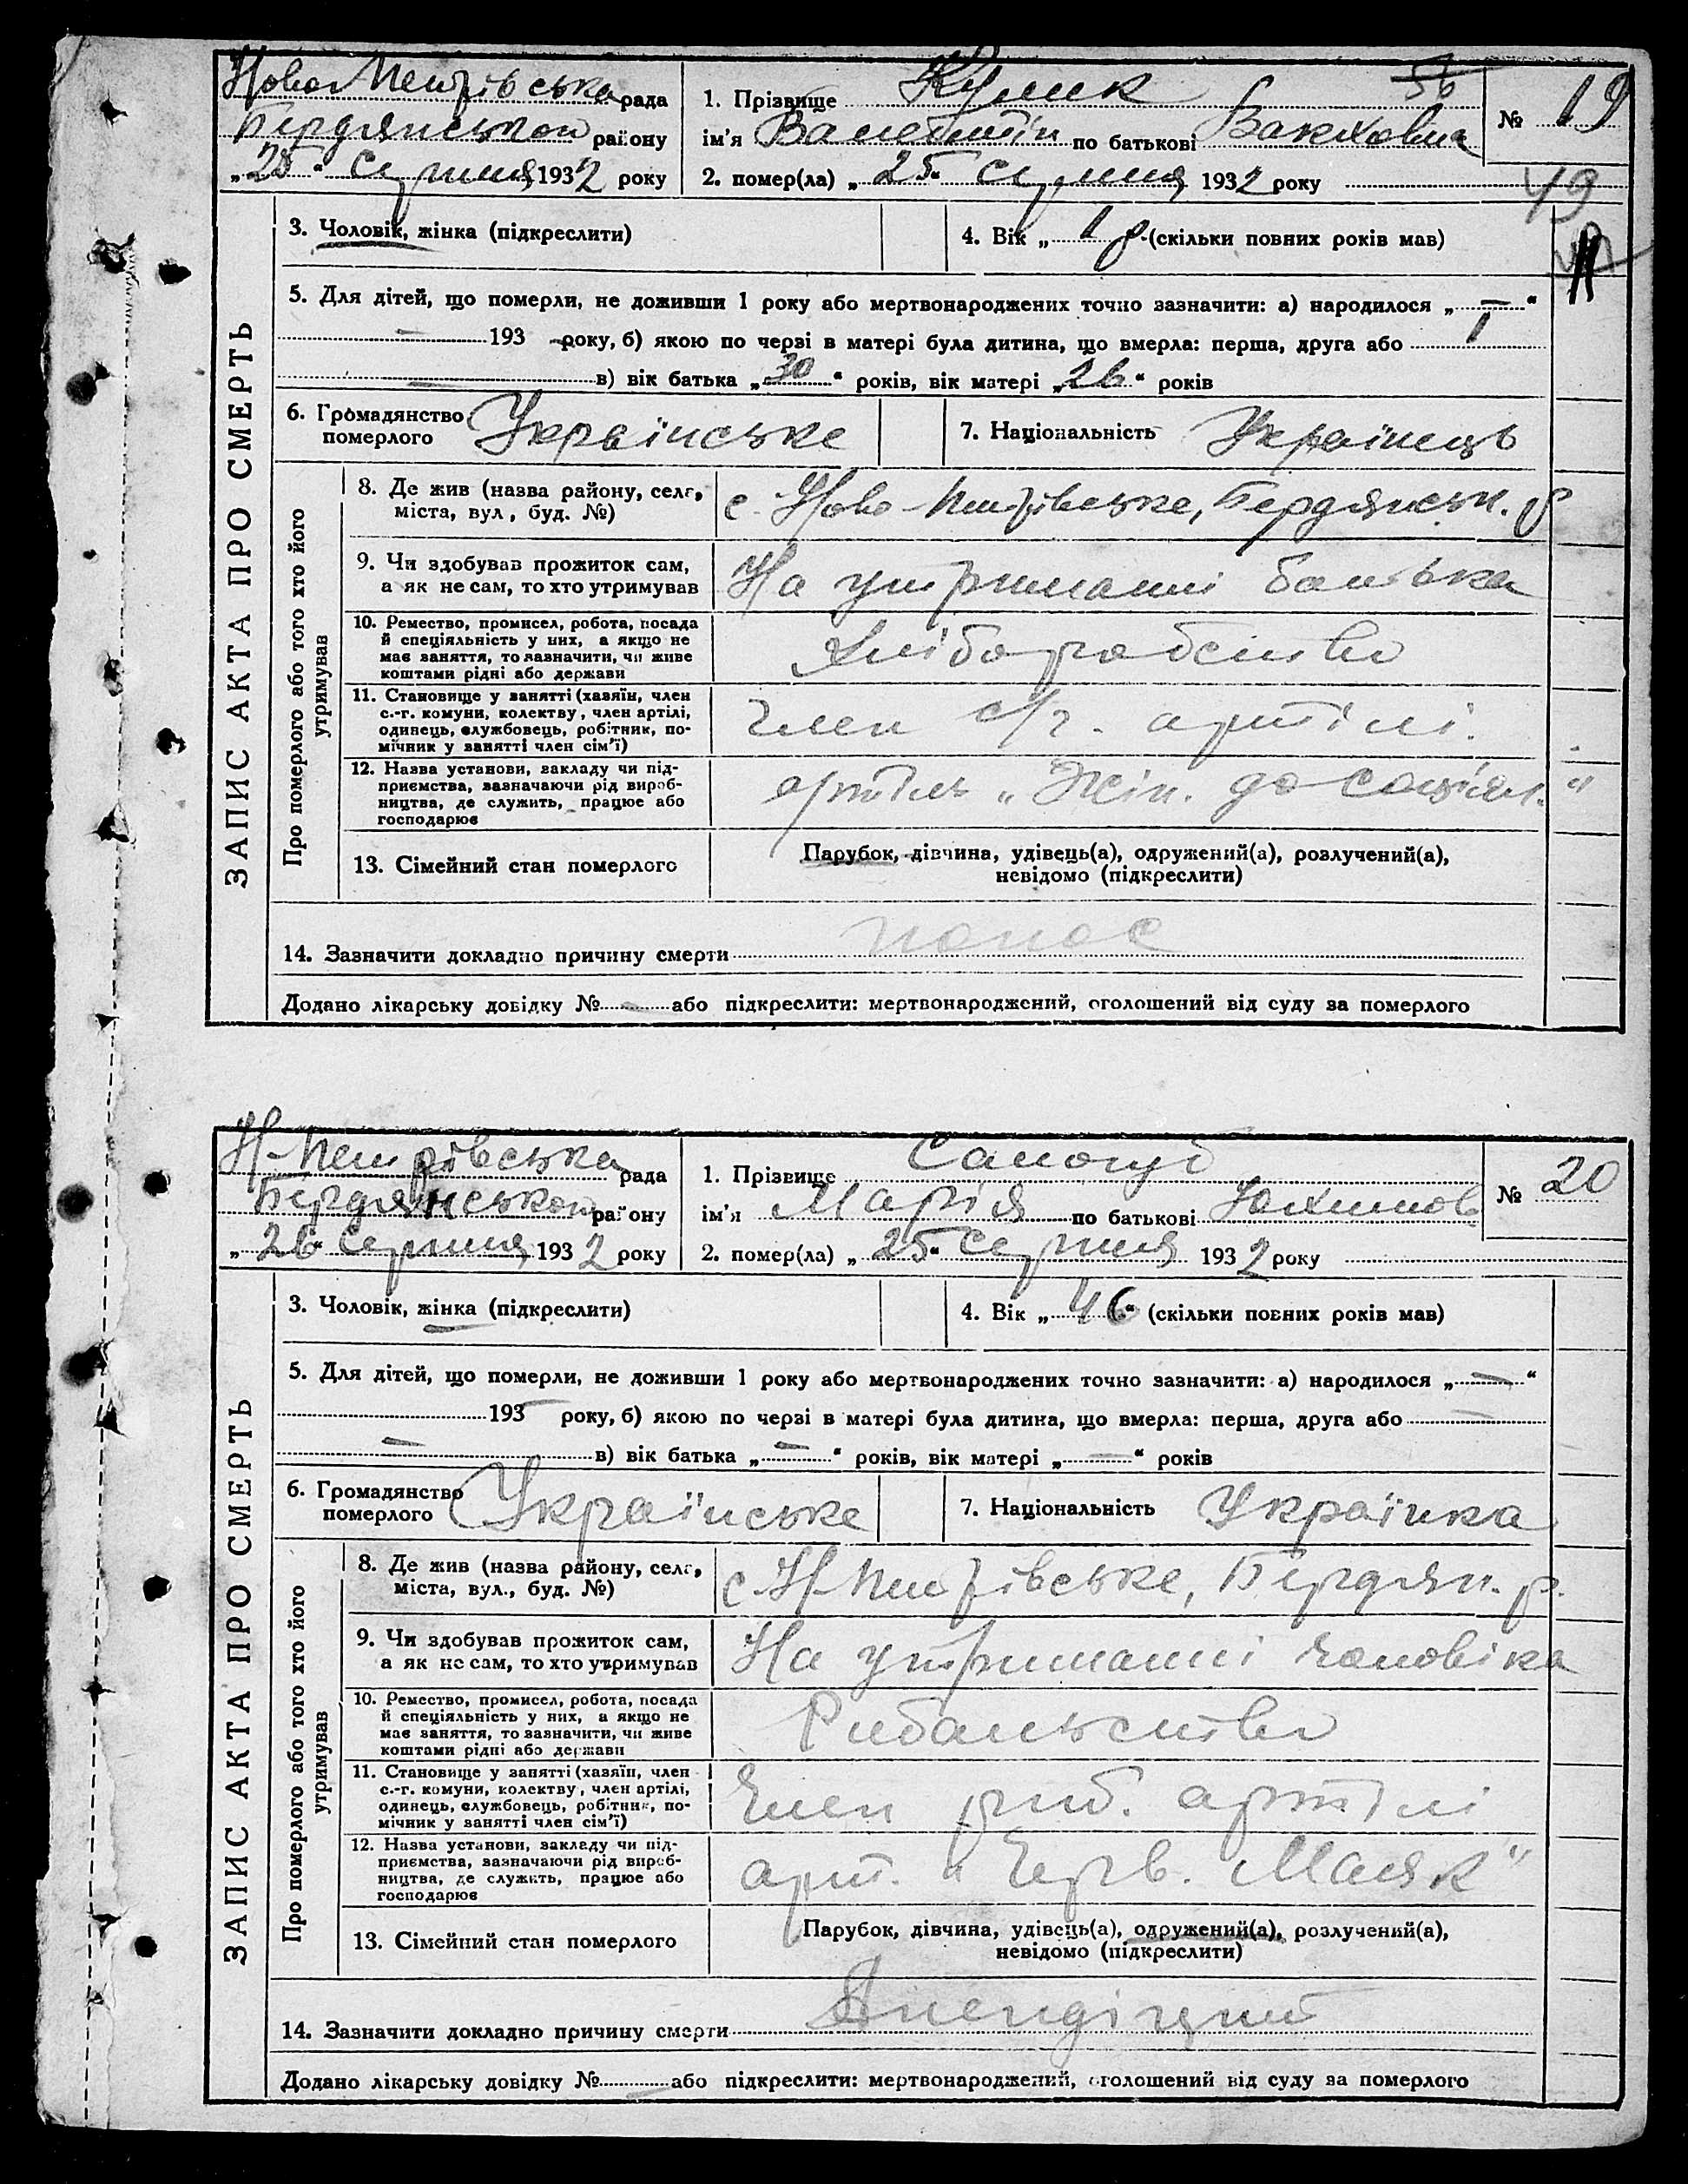 Ново Петрівська рада
Бердянського району
„25“ Серпня 1932 року
1. Прізвище Кулик
ім'я Валентин по батькові
2. помер(ла) „25“ Серпня 1932 року
56
№ 19
49
ЗАПИС АКТА ПРО СМЕРТЬ
3. Чоловік, жінка (підкреслити)
4. Вік „1 р.(скільки повних років мав)
5. Для дітей, що померли, не доживши 1 року або мертвонароджених точно зазначити: а) народилося „—“
— 193 — року, б) якою по черзі в матері була дитина, що вмерла: перша, друга або I
— в) вік батька „30“ років, вік матері „26“ років
6. Громадянство померлого Українське
7. Національність Українець
Про померлого або того хто його утримував
8. Де жив (назва району, села, міста, вул., буд. №)
с. Ново-Петрівське, Бердянськ. р
9. Чи здобував прожиток сам, а як не сам, то хто утримував
На утриманні батька
10. Ремество, промисел, робота, посада й спеціяльність у них, а якщо не має заняття, то зазначити, чи живе коштами рідні або держави
Хліборобство
11. Становище у занятті (хазяїн, член с.-г. комуни, колектву, член артілі, одинець, службовець, робітник, помічник у занятті член сім'ї)
Член с/г. артілі.
12. Назва установи, закладу чи підприємства, зазначаючи рід виробництва, де служить, працює або господарює
артіль „ до соціял. “
13. Сімейний стан померлого
Парубок, дівчина, удівець(а), одружений(а), розлучений(а),
невідомо (підкреслити)
14. Зазначити докладно причину смерти понос
Додано лікарську довідку № — або підкреслити: мертвонароджений, оголошений від суду за померлого
Н-Петрівська рада
Бердянського району
„26“ Серпня 1932 року
1. Прізвище Самогуб
ім'я Марія по батькові Юхимов
2. помер(ла) „25“ Серпня 1932 року
№ 20
ЗАПИС АКТА ПРО СМЕРТЬ
3. Чоловік, жінка (підкреслити)
4. Вік „46“ (скільки повних років мав)
5. Для дітей, що померли, не доживши 1 року або мертвонароджених точно зазначити: а) народилося „—“
193 — року, б) якою по черзі в матері була дитина, що вмерла: перша, друга або —
— в) вік батька „—“ років, вік матері „—“ років
6. Громадянство померлого Українське
7. Національність Українка
Про померлого або того хто його утримував
8. Де жив (назва району, села, міста, вул., буд. №)
с. Н-Петрівське, Бердян. р.
9. Чи здобував прожиток сам, а як не сам, то хто утримував
На утриманні чоловіка
10. Ремество, промисел, робота, посада й спеціяльність у них, а якщо не має заняття, то зазначити, чи живе коштами рідні або держави
Рибальство
11. Становище у занятті (хазяїн, член с.-г. комуни, колектву, член артілі, одинець, службовець, робітник, помічник у занятті член сім'ї)
Член риб. артілі
12. Назва установи, закладу чи підприємства, зазначаючи рід виробництва, де служить, працює або господарює
арт. „Черв. Маяк“
13. Сімейний стан померлого
Парубок, дівчина, удівець(а), одружений(а), розлучений(а),
невідомо (підкреслити)
14. Зазначити докладно причину смерти Апендіцит
Додано лікарську довідку № — або підкреслити: мертвонароджений, оголошений від суду за померлого